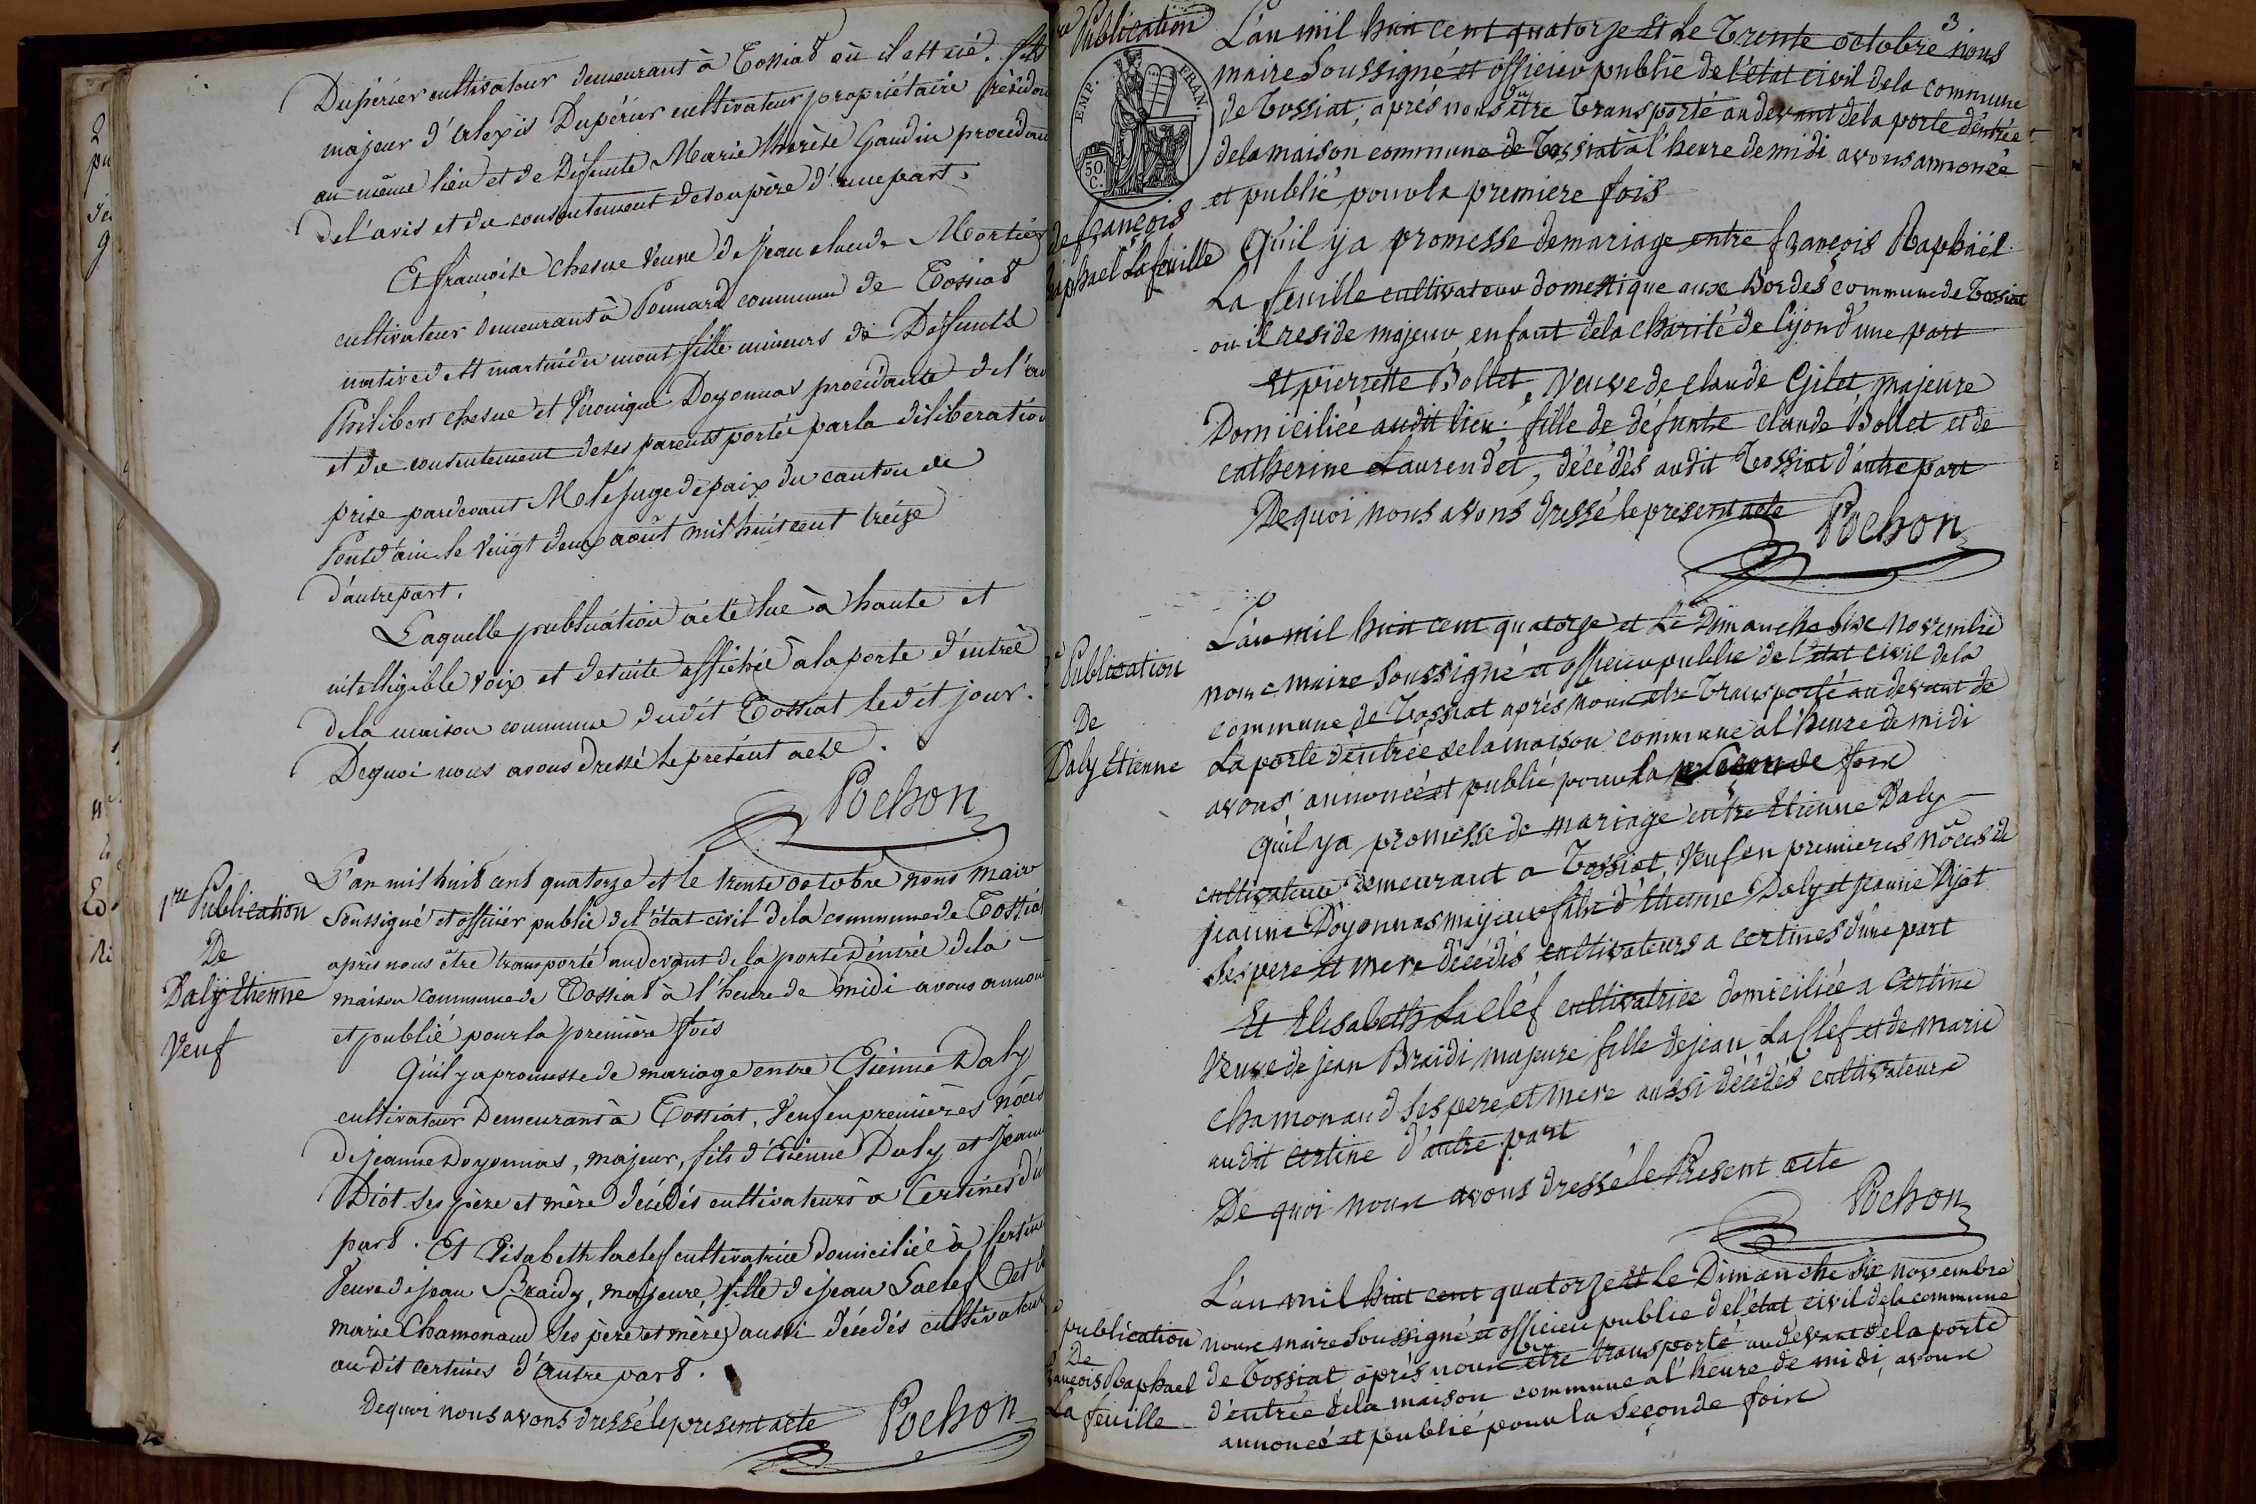 Dupérier cultivateur demeurant à Tossiat où il est né. fils
majeur d'alexis Dupérier cultivateur propriétaire résidant
au même lieu et de Défunte Marie thérèse Gaudin procédant
de l'avis et du consentement de son père d'une part.
Et françoise chesne veuve de jean claude Mortier
cultivateur demeurant à Pomard commune de Tossiat
native de st martin du mont fille mineure de Défunts
Philibert chesne et Véronique Doyonnas procédante de l'avis
et du consentement de ses parents portée par la déliberation
prise pardevant M. le juge de paix du canton de
Pont d'ain le vingt deux août mil huit cent treize
d'autre part.
Laquelle publication a été lue à haute et
intelligible voix et de suite affichée à la porte d'entrée
de la maison commune dudit Tossiat ledit jour.
De quoi nous avons dressé le présent acte.
Pochon
1re Publication
De
Daly Etienne
Veuf
L'an mil huit cent quatorze et le trente octobre nous maire
soussigné et officier public de l'état civil de la commune de Tossiat
après nous être transporté audevant de la porte d'entrée de la
maison commune de Tossiat à l'heure de midi avons annon
et publié pour la première fois
Qu'il y a promesse de mariage entre Etienne Daly
cultivateur demeurant à Tossiat, Veuf en premières nôces
de jeanne Doyonnas, majeur, fils d'Etienne Daly et jeanne
Diot ses père et mère décédés cultivateurs à Certines d'u
part. Et Elisabeth laclef cultivatrice domiciliée à Certine
Veuve de jean Braidy, majeure, fille de jean Laclef et d
marie Chamonaud ses père et mère aussi décédés cultivateurs
audit certines d'autre part.
De quoi nous avons dressé le present acte
Pochon
3
Publication
de françois
raphael Lafeuille
EMP. FRAN.
50 C.
L'an mil huit cent quatorze et le Trente octobre nous
maire Soussigné et officier public de l'état civil de la commune
de Tossiat, après nous être Transporté au devant de la porte d'entrée
de la maison commune de Tossiat à l'heure de midi avons annoncé
et publié pour la premiere fois
Qu'il y a promesse de mariage entre françois Raphaël
La feuille cultivateur domestique aux Bordes commune de Tossiat
ou il reside majeur, enfant de la charité de Lyon d'une part
Et pierrette Bollet, Veuve de claude Gilet, majeure
Domiciliée audit lieu; fille de défunte claude Bollet et de
catherine Laurendet, décédés audit Tossiat d'autre part
De quoi nous avons dressé le present acte
Pochon
Publication
De
Daly Etienne
L'an mil huit cent quatorze et Le Dimanche six novembre
nous maire soussigné et officier public de l'état civil de la
commune de Tossiat après nous etre transporté au devant de
La porte d'entrée de la maison commune a l'heure de midi
avons annoncé et publié pour la seconde fois
qu'il y a promesse de mariage entre Etienne Daly
cultivateur demeurant a Tossiat, Veuf en premieres nôces de
jeanne Doyonnas majeur fils d'Etienne Daly et jeanne Diot
ses pere et mere décédés cultivateurs a certines d'une part
Et Elisabeth Laclef cultivatrice domiciliée a certine
Veuve de jean Braidi majeure fille de jean LaClef et de marie
Chamonaud ses pere et mere aussi décédés cultivateurs
audit certine d'autre part
De quoi nous avons dressé le Present acte
Pochon
publication
De
françois Raphael
La feuille
L'an mil huit cent quatorze et le Dimanche six novembre
nous maire soussigné et officier public de l'état civil de la commune
de Tossiat après nous être transporté au devant de la porte
d'entrée de la maison commune a l'heure de midi, avons
annoncé et publié pour la seconde fois